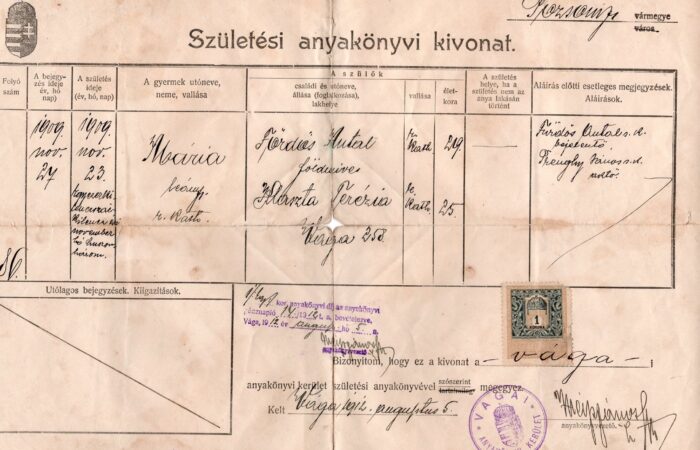 Pozsony vármegye
város.
Születési anyakönyvi kivonat.
Folyó szám
A bejegyzés ideje (év, hó, nap)
A születés ideje (év, hó, nap)
A gyermek utóneve, neme, vallása
A szülők
családi és utóneve, állása (foglalkozása), lakhelye
vallása
életkora
A születés helye, ha a születés nem az anya lakásán történt
Aláírás előtti esetleges megjegyzések. Aláírások.
86.
1909
nov.
27
1909
nov.
23.
november
Mária
leány
r. kath.
Fördős Antal
földmives
Klaszta Terézia
Vága 258
r. kath.
r. kath.
29
25.
Fördős Antal s. k.
bejelentő
János s. k.
Utólagos bejegyzések. Kiigazítások.
ker. anyakönyvi díj az anyakönyvi
Vága, 1912 év augusztus hó 5
anyakönyvvezető.
1
KORONA
Bizonyítom, hogy ez a kivonat a - vágai - i
anyakönyvi kerület születési anyakönyvével szószerint megegyez.
tartalmilag
Kelt Vága 1912. augusztus 5.
VÁGAI
KERÜLET
anyakönyvvezető.